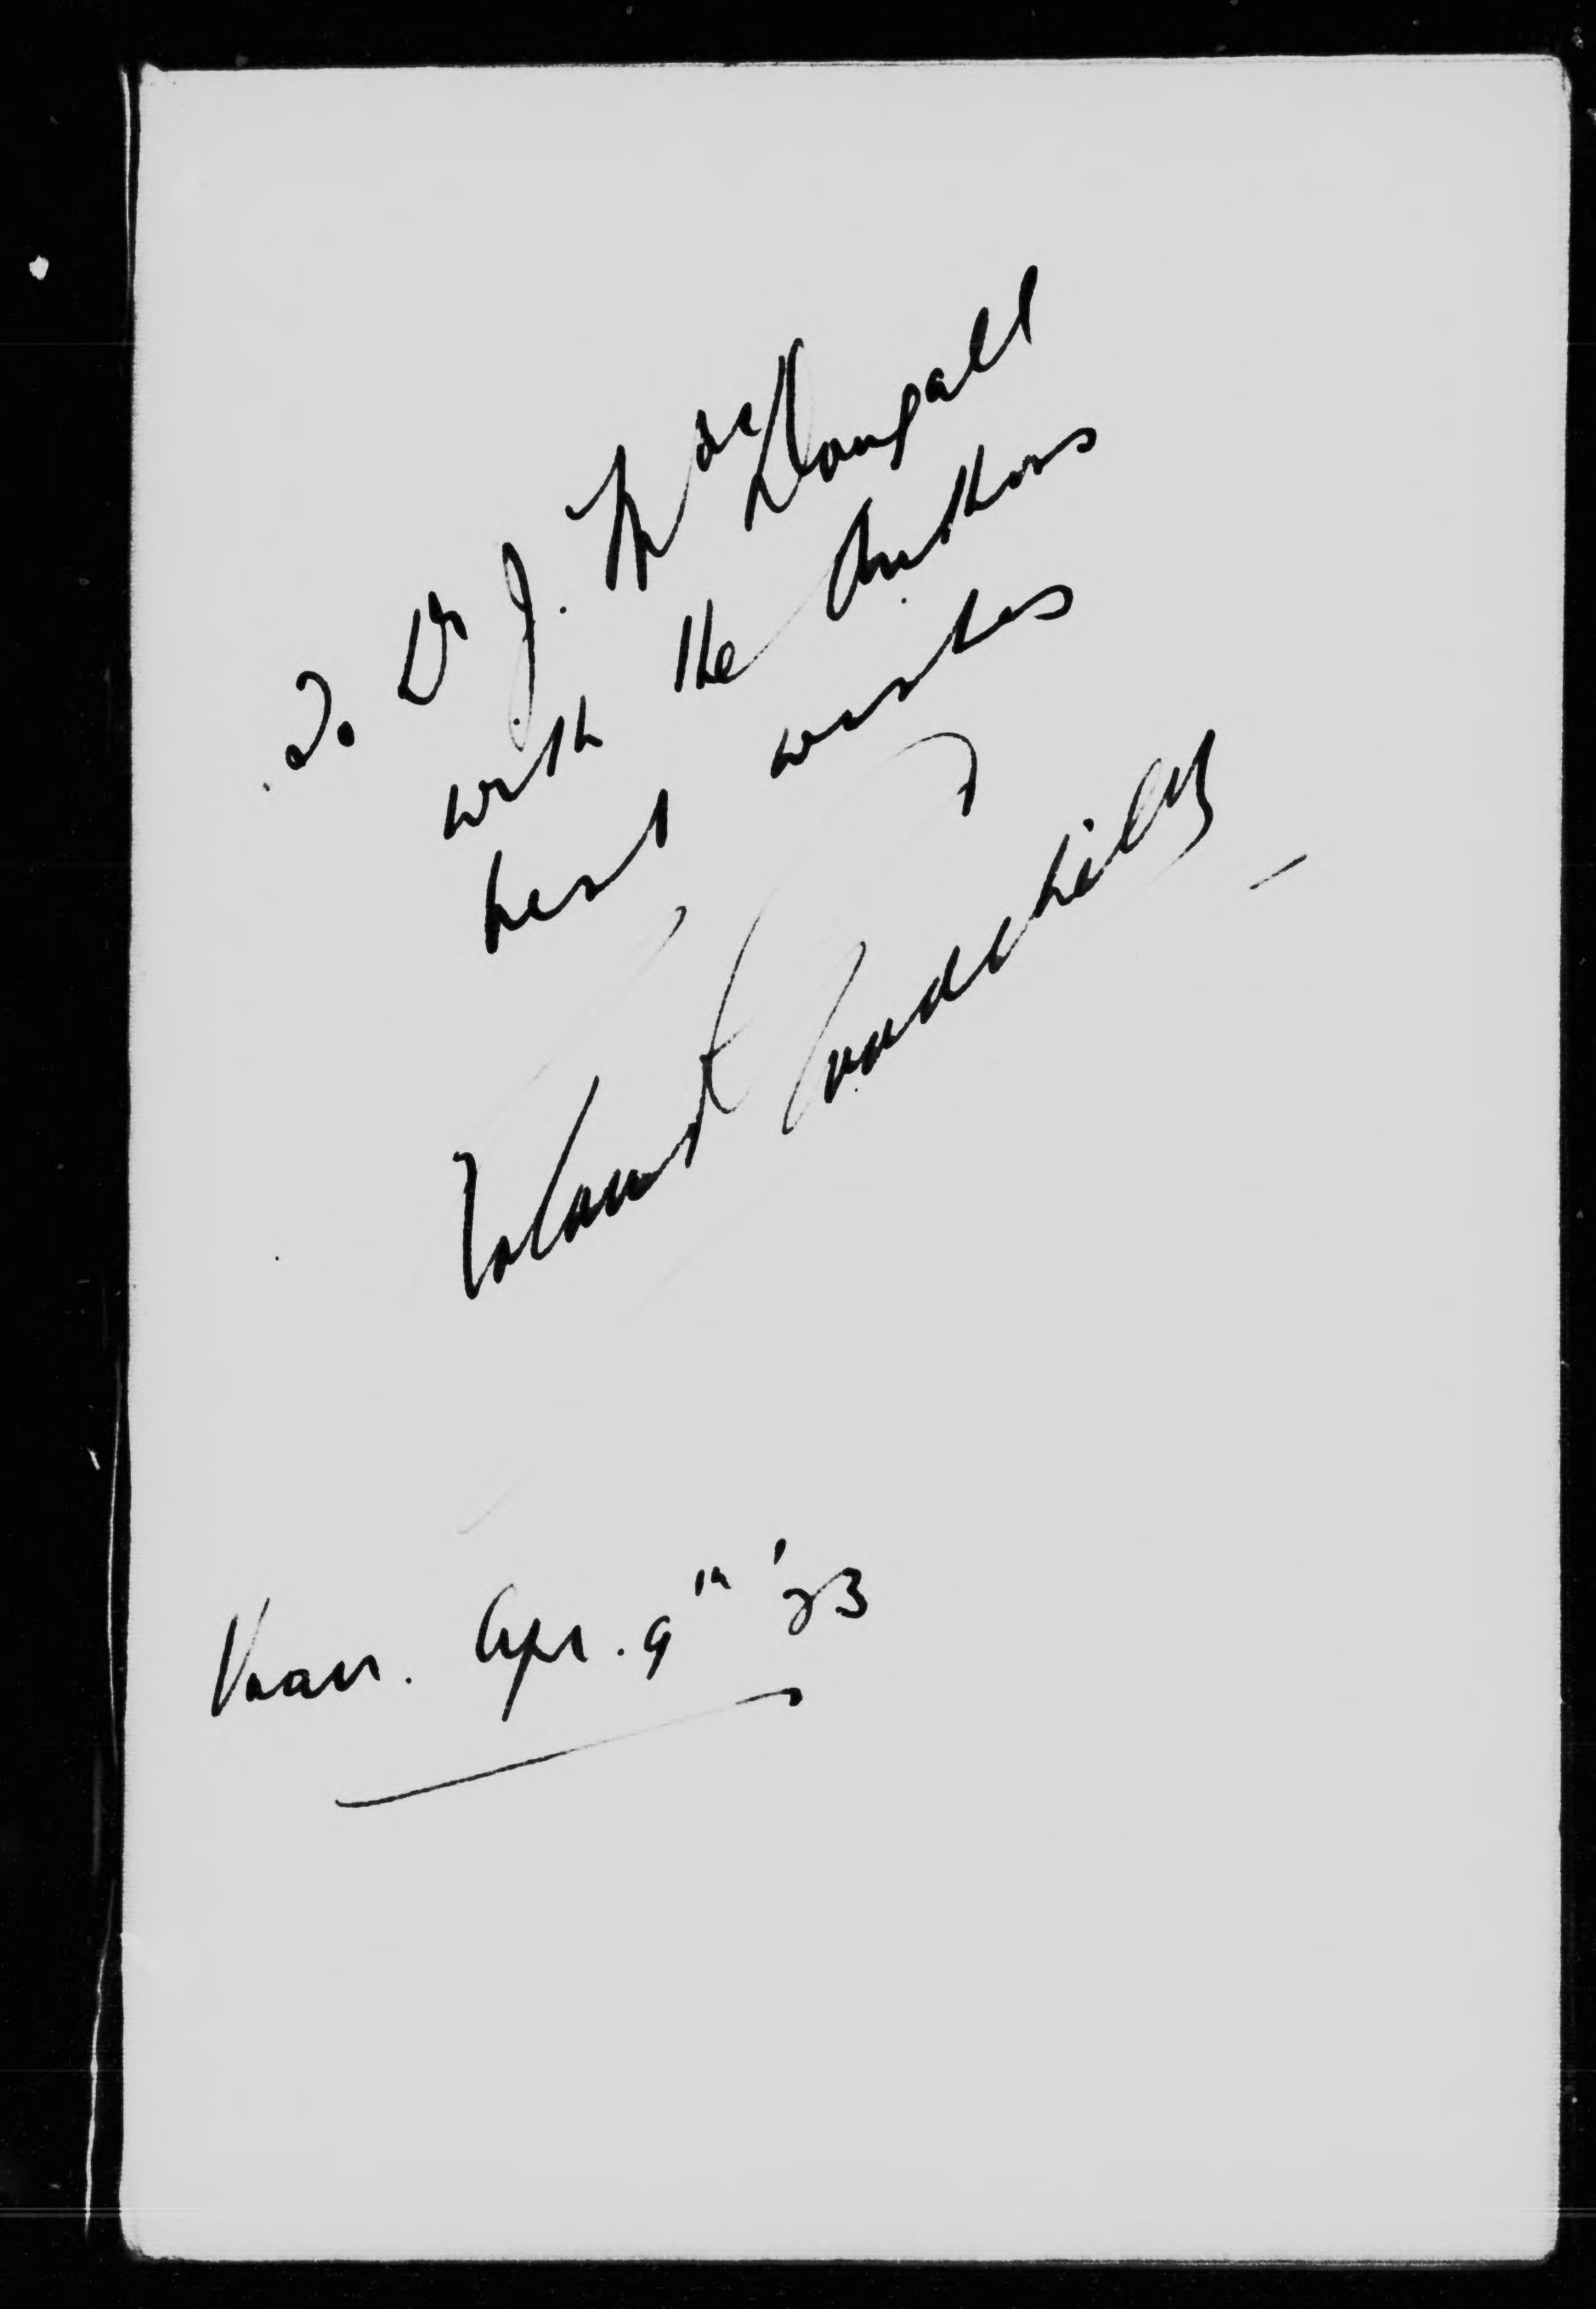 To Dr J. MacDougall
with the Authors
best wishes
Roland Goodchild
Vcan. Apr. 9th '23